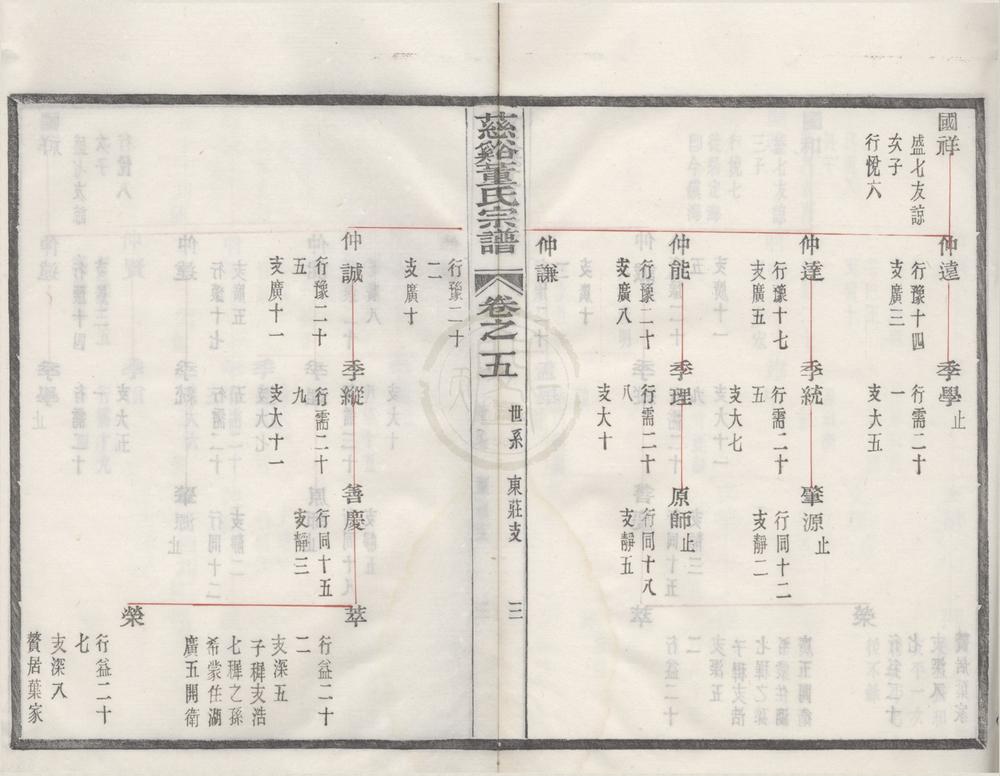 國祥
盛七友諒
次子
行悅六
仲遠
行豫十四
支廣三
季學止
行需二十
一
支大五
仲達
行豫十七
支廣五
季統
行需二十
五
支大七
肇源止
行同十二
支靜二
仲能
行豫二十
支廣八
季理
行需二十
八
支大十
原師止
行同十八
支靜五
仲謙
慈谿董氏宗譜
卷之五
世系
東莊支
三
行豫二十
二
支廣十
仲誠
行豫二十
五
支廣十一
季縱
行需二十
九
支大十一
善慶
行同十五
支靜三
萃
行益二十
二
支深五
子穉支浩
七穉之孫
希蒙住湖
廣五開衛
榮
行益二十
七
支深八
贅居葉家